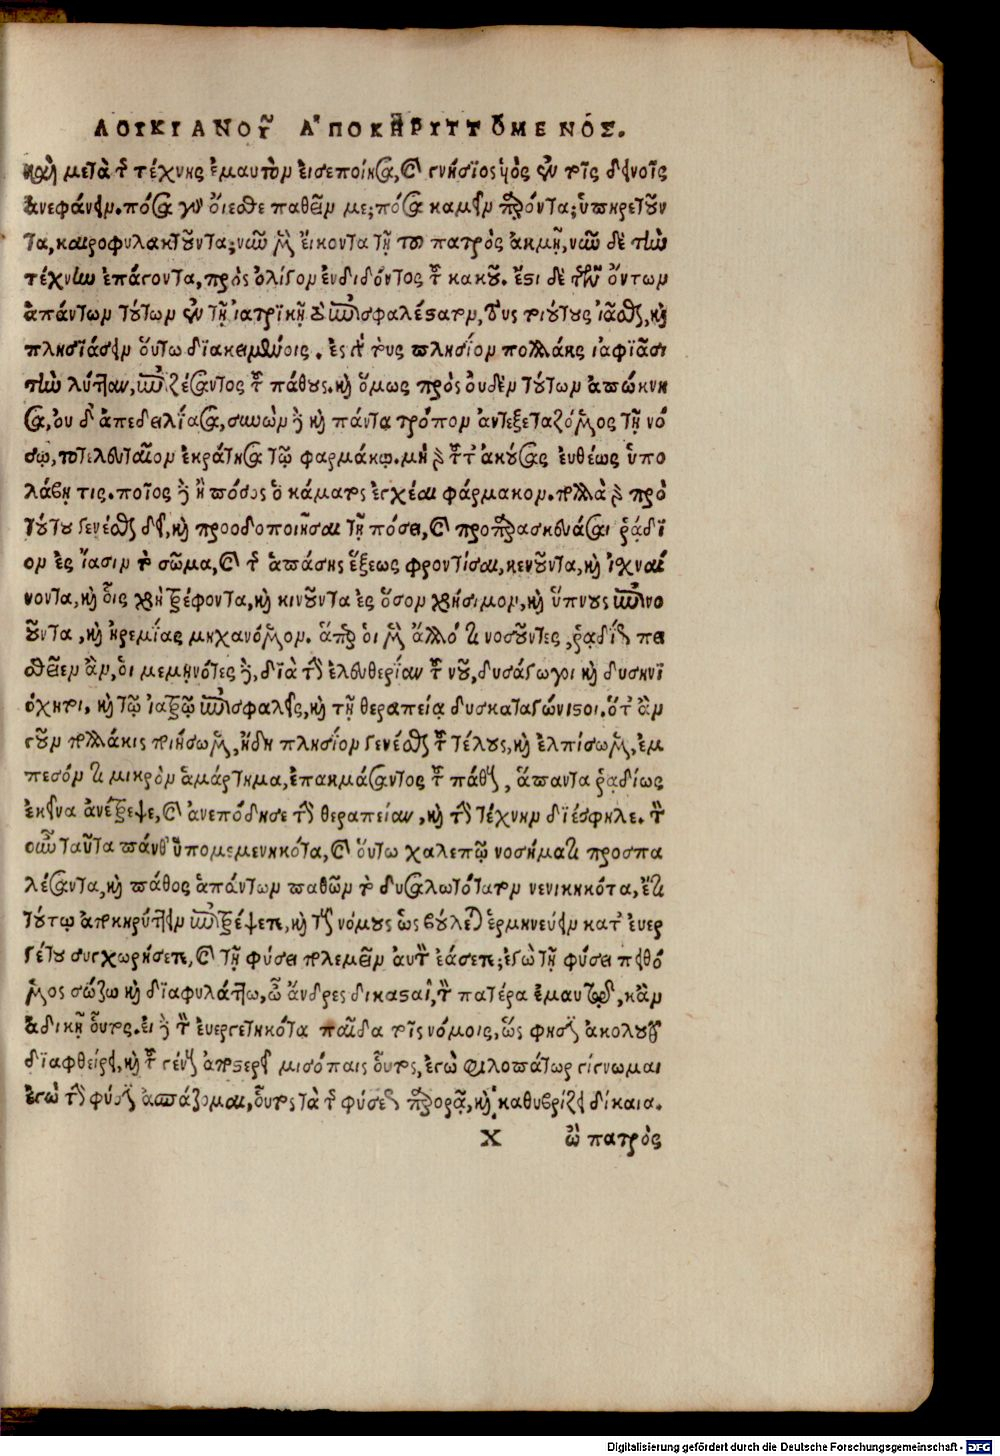 ΛΟΥΚΙΑΝΟΥ͂ ἈΠΟΚΗΡΥΤΤΌΜΕΝΟΣ.
καὶ μετὰ τῆς τέχνης ἐμαυτὸν εἰσεποίησα, καὶ γνήσιος υἱὸς ἐν τοῖς δεινοῖς
ἀνεφάνην. πόσα γὰρ οἴεσθε παθεῖν με; πόσα καμεῖν παρόντα; ὑπηρετοῦν
τα, καιροφυλακτοῦντα; νῦν μὲν εἴκοντα τῇ τοῦ πατρὸς ἀκμῇ, νῦν δὲ τὴν
τέχνην ἐπάγοντα, πρὸς ὀλίγον ἐνδιδόντος τοῦ κακοῦ. ἔστι δὲ τῶν ὄντων
ἁπάντων τούτων ἐν τῇ ἰατρικῇ τὸ ἐπισφαλέστατον, τοὺς τοιούτους ἰᾶσθαι, καὶ
πλησιάζειν οὕτω διακειμένοις. ἐς γὰρ τοὺς πλησίον πολλάκις ἀφιᾶσι
τὴν λύτταν, ἐπιζέσαντος τοῦ πάθους. καὶ ὅμως πρὸς οὐδὲν τούτων ἀπώκνη
σα, οὐδ' ἀπεδειλίασα, συνὼν δὲ καὶ πάντα τρόπον ἀντεξεταζόμενος τῇ νό
σῳ, τὸ τελευταῖον ἐκράτησα τῷ φαρμάκῳ. μὴ γὰρ τοῦτο ἀκούσας εὐθέως ὑπο
λάβῃ τις. ποῖος δὲ ἢ πόσος ὁ κάματος ἐγχέαι φάρμακον. πολλὰ γὰρ πρὸ
τούτου γενέσθαι δεῖ, καὶ προοδοποιῆσαι τῇ πόσει, καὶ προπαρασκευάσαι ῥᾴδι
ον ἐς ἴασιν τὸ σῶμα, καὶ τῆς ἁπάσης ἕξεως φροντίσαι, κενοῦντα, καὶ ἰχναί
νοντα, καὶ οἷς χρὴ τρέφοντα, καὶ κινοῦντα ἐς ὅσον χρήσιμον, καὶ ὕπνους ἐπινο
οῦντα, καὶ ἠρεμίας μηχανόμενον. ἅπερ οἱ μὲν ἄλλό τι νοσοῦντες, ῥᾳδίως πει
σθεῖεν ἂν, οἱ μεμηνότες δὲ, διὰ τὴν ἐλευθερίαν τοῦ νοῦ, δυσάγωγοι καὶ δυσηνι
όχητοι, καὶ τῷ ἰατρῷ ἐπισφαλεῖς, καὶ τῇ θεραπείᾳ δυσκαταγώνιστοι. ὅταν
γοῦν πολλάκις ποιήσωμεν, ἤδη πλησίον γενέσθαι τοῦ τέλους, καὶ ἐλπίσωμεν, ἐμ
πεσόν τι μικρὸν ἁμάρτημα, ἐπακμάσαντος τοῦ πάθους, ἅπαντα ῥᾳδίως
ἐκεῖνα ἀνέτρεψε, καὶ ἀνεπόδησε τὴν θεραπείαν, καὶ τὴν τέχνην διέσφηλε. τὸν
οὖν ταῦτα πάνθ' ὑπομεμενηκότα, καὶ οὕτω χαλεπῷ νοσήματι προσπα
λέσαντα, καὶ πάθος ἁπάντων παθῶν τὸ δυσαλωτότατον νενικηκότα, ἔτι
τούτῳ ἀποκηρύττειν ἐπιτρέψετε, καὶ τοὺς νόμους ὡς βούλεται ἑρμηνεύειν κατ' εὐερ
γέτου συγχωρήσετε, καὶ τῇ φύσει πολεμεῖν αὐτὸν ἐάσετε; ἐγὼ τῇ φύσει πειθό
μενος σώζω καὶ διαφυλάττω, ὦ ἄνδρες δικασταὶ, τὸν πατέρα ἐμαυτῷ, κἂν
ἀδικῇ οὗτος. εἰ δὲ τὸν εὐεργετηκότα παῖδα τοῖς νόμοις, ὥς φησιν ἀκολουθῶν
διαφθείρει, καὶ τοῦ γένους ἀποστερεῖ μισόπαις οὗτος, ἐγὼ φιλοπάτωρ γίγνωμαι
ἐγὼ τὴν φύσιν ἀσπάζομαι, οὗτος τὰ τῆς φύσεως παρορᾷ, καὶ καθυβρίζει δίκαια.
X ὢ πατρὸς
Digitalisierung gefördert durch die Deutsche Forschungsgemeinschaft - DFG